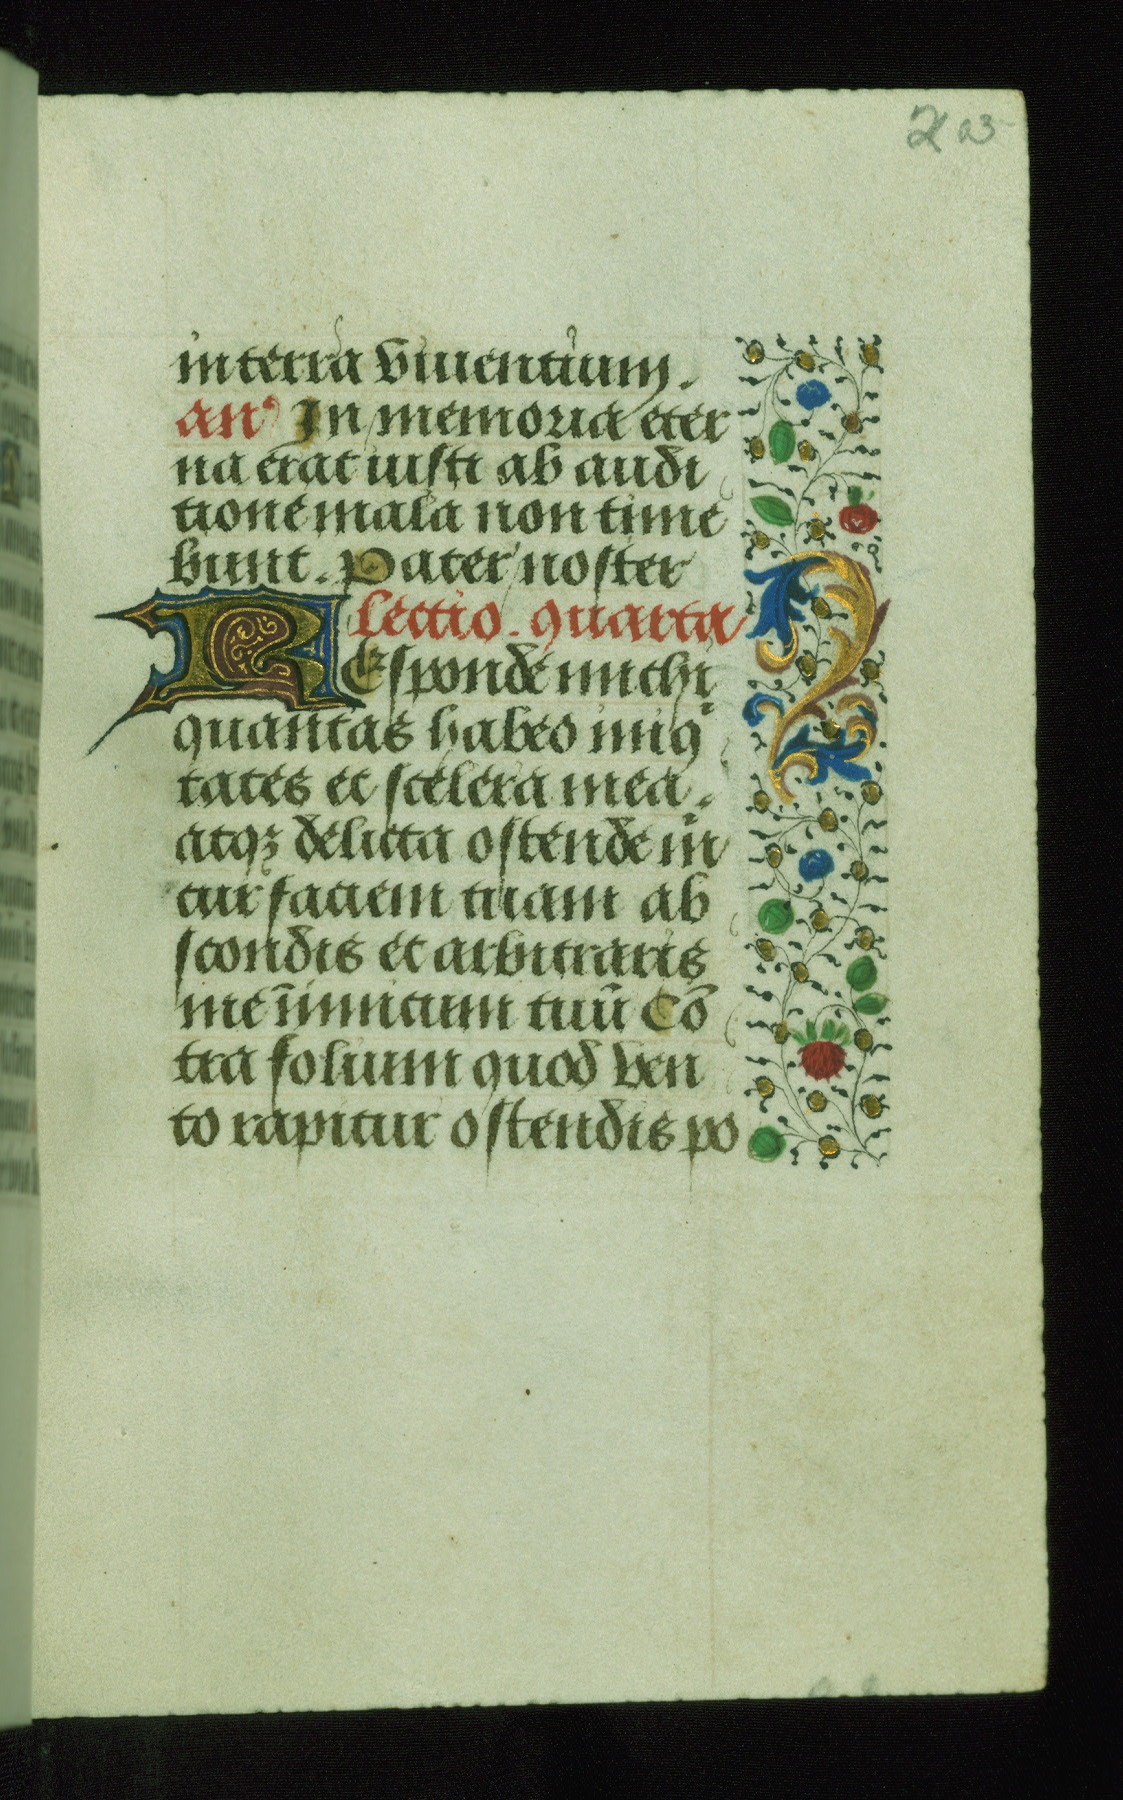 203
in terra viuentium.
an' In memoria eter
na erat iusti ab audi
tione mala non time
bunt. Pater noster
Lectio. quarta
REsponde michi
quantas habeo iniq
tates et scelera mea.
atqꝫ delicta ostende m̄
cur faciem tuam ab
scondis et arbitraris
me īimicum tuū Cō
tra folium quod ven
to rapitur ostendis po